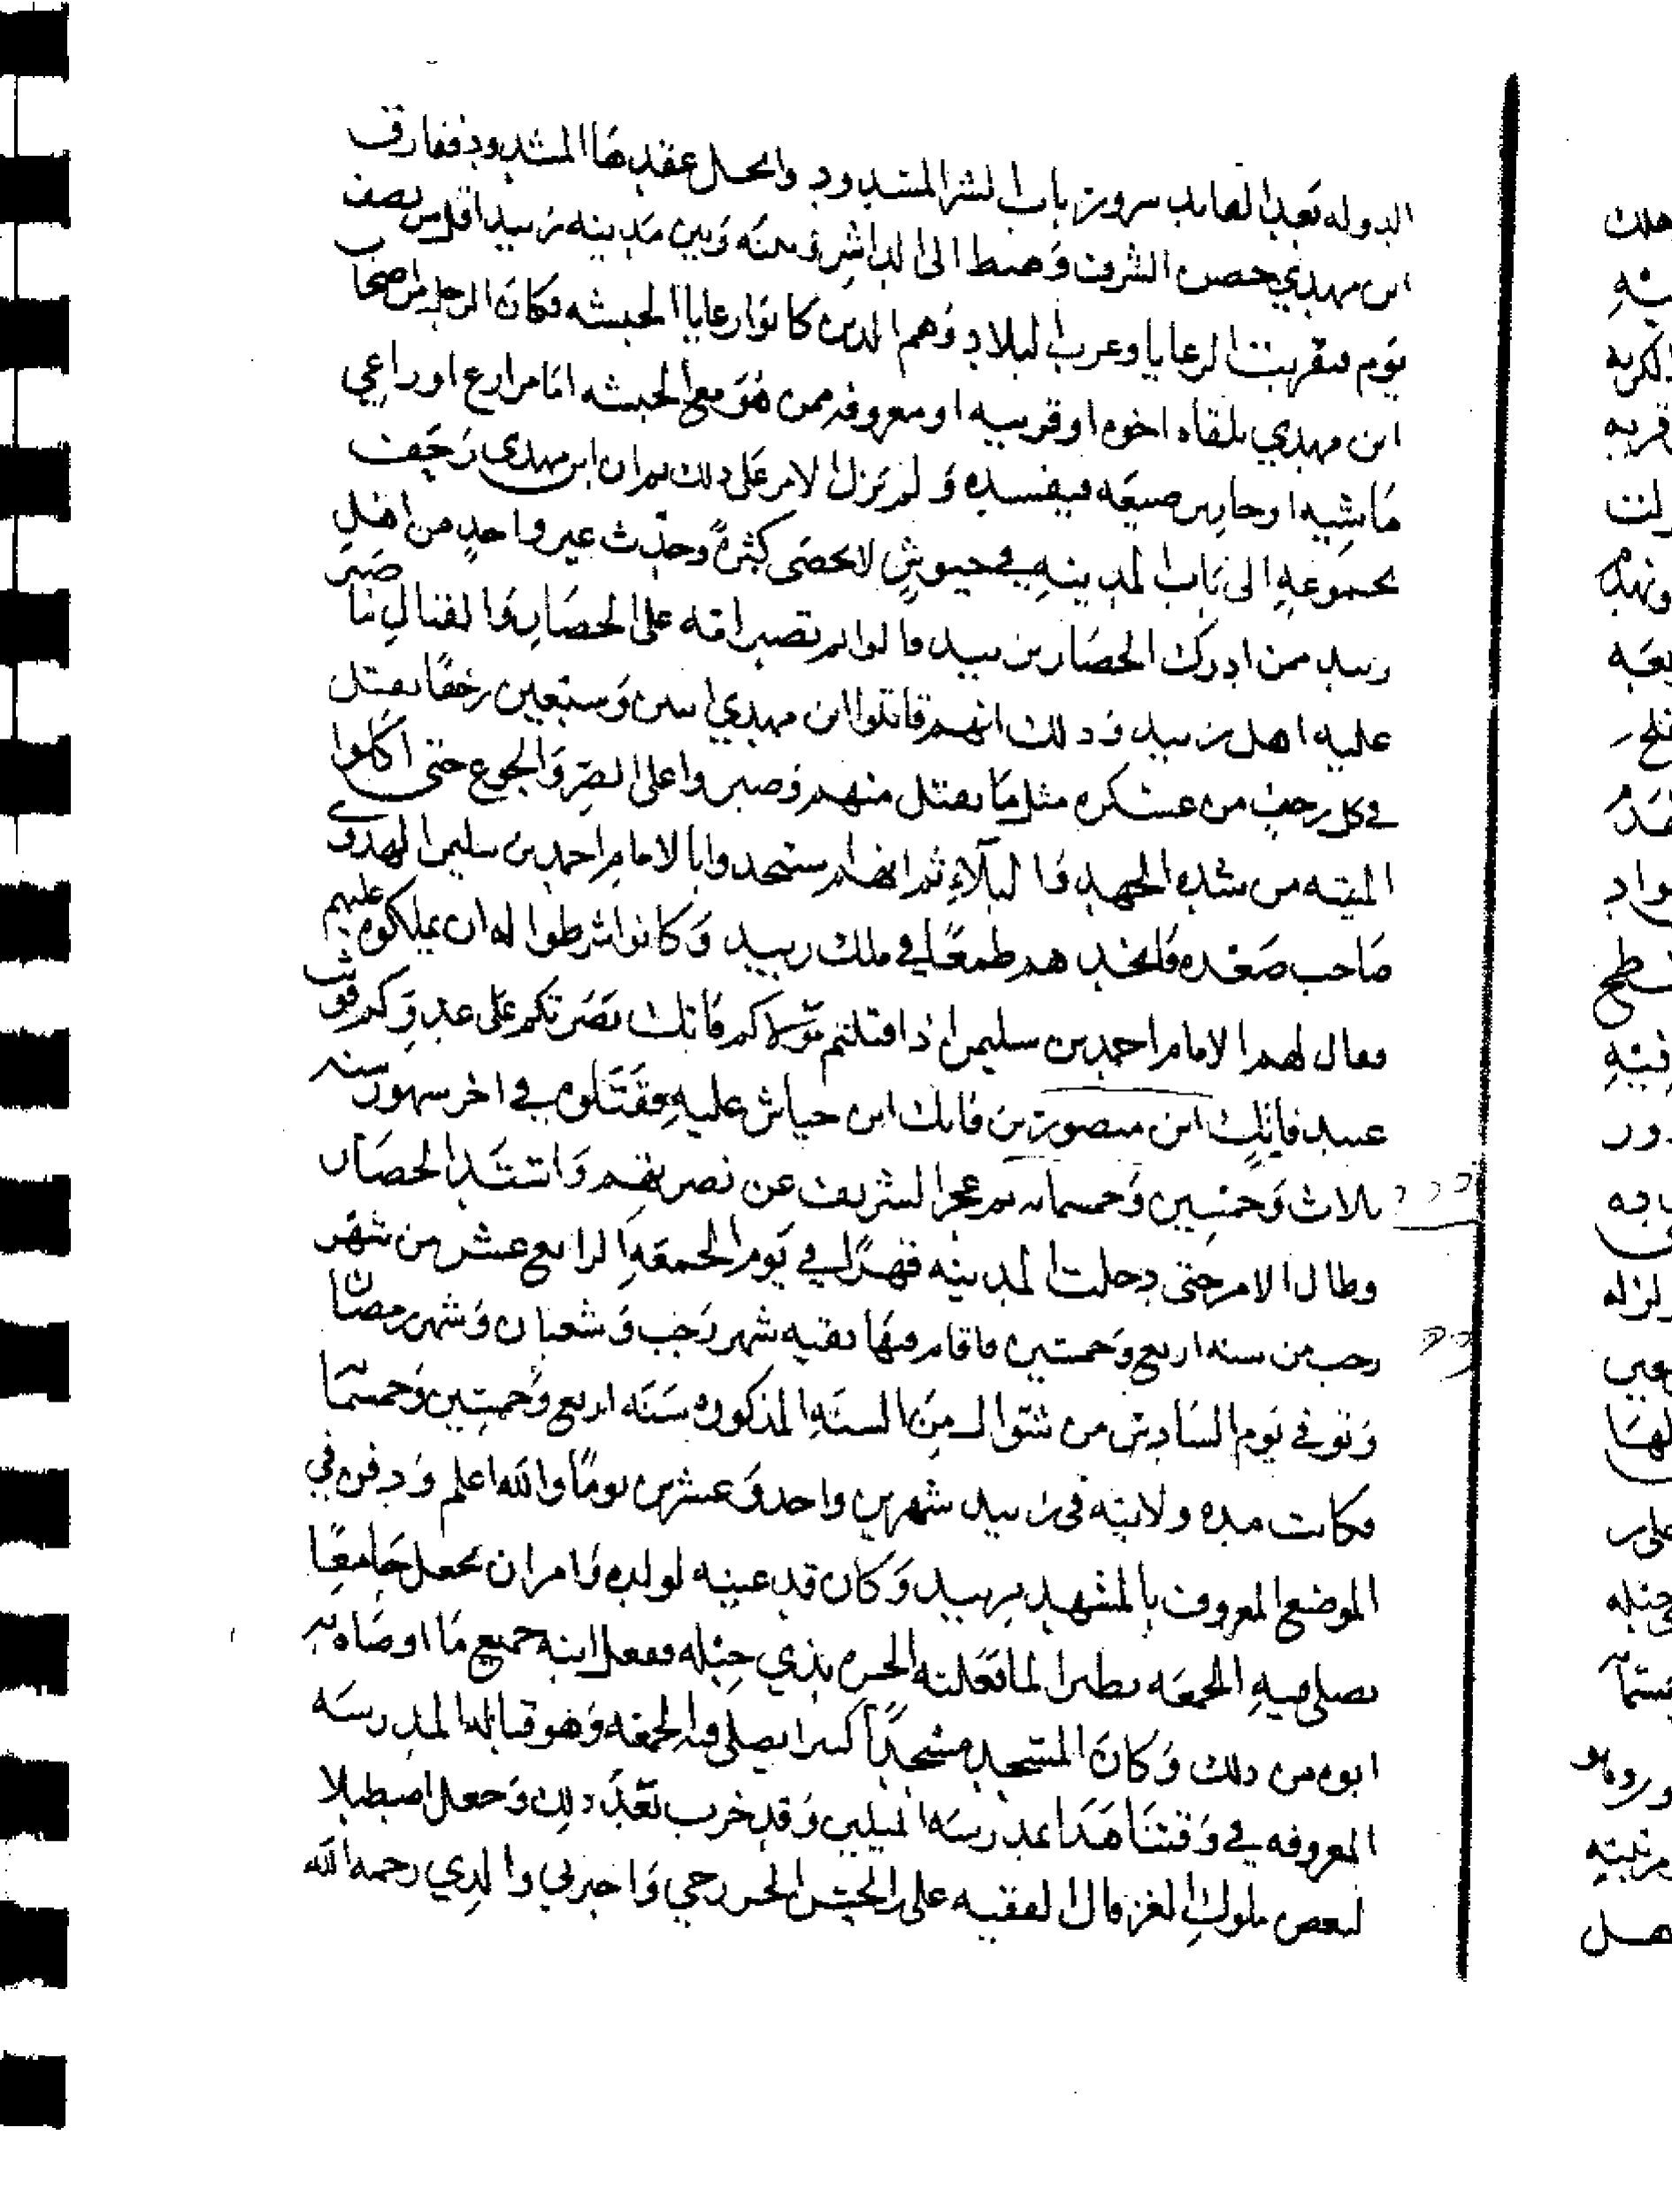 الدوله بعد القايد سرور باب الشر المسدود وانحل عقدها المشدود ففارق
ابن مهدي حصن الشرف وهبط الى الداشر وبينه وبين مدينه زبيد اقل من نصف
يوم فتقربت الرعايا وعرب البلاد وهم الذين كانوا رعايا الحبشه فكان الرجل من اصحاب
ابن مهدي يلقاه اخوه او قريبه او معروفه ممن هو مع الحبشه اما مزارع او راعي
ماشيه او حارس ضيعه فيفسده ولم يزل الامر على ذلك ثم ان ابن مهدي زحف
بجموعه الى باب المدينه في جيوش لا تحصى كثرة وحدث غير واحد من اهل
زبيد ممن ادرك الحصار بزبيد قالوا لم تصبر امه على الحصار والقتال ما صبر
عليه اهل زبيد وذلك انهم قاتلوا ابن مهدي اثنين وسبعين زحفا يقتل
في كل زحف من عسكره مثل ما يقتل منهم وصبروا على الضر والجوع حتى اكلوا
الميته من شده الجهد والبلاء ثم انهم استنجدوا بالامام احمد بن سليمن الهدوى
صاحب صعده فانجدهم طمعا في ملك زبيد وكانوا شرطوا له ان يملكوه عليهم
فقال لهم الامام احمد بن سليمن اذا قتلتم مولاكم فاتك نصرتكم على عدوكم فوثب
عبيد فاتك ابن منصور بن فاتك ابن جياش عليه فقتلوه في اخر شهور سنه
ثلاث وخمسين وخمسمائه ثم عجز الشريف عن نصرتهم واشتد الحصار
وطال الامر حتى دخلت المدينه قهرا في يوم الجمعه الرابع عشر من شهر
رجب من سنه اربع وخمسين فاقام فيها بقيه شهر رجب وشعبان وشهر رمضان
وتوفي يوم السادس من شوال من السنه المذكوره سنه اربع وخمسين وخمسمائه
فكانت مده ولايته في زبيد شهرين واحد وعشرين يوما والله اعلم ودفن في
الموضع المعروف بالمشهد بزبيد وكان قد عينه لولده وامر ان يجعل جامعا
يصلى فيه الجمعه نظيرا لما فعلته الحره بذي جبله ففعل ابنه جميع ما اوصاه به
ابوه من ذلك وكان المسجد مسجدا كبيرا يصلى فيه الجمعه وهو قباله المدرسه
المعروفه في وقتنا هذا بمدرسه الميلين وقد خرب بعد ذلك وجعل اصطبلا
لبعض ملوك الغز قال الفقيه علي بن الحسن الخزرجي واخبرني والدي رحمه الله